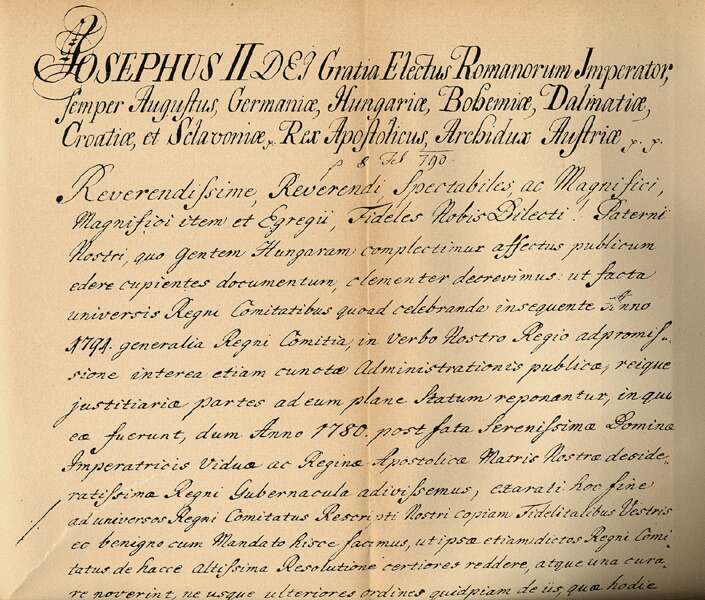 JOSEPHUS II DEI Gratia Electus Romanorum Imperator,
semper Augustus, Germaniæ, Hungariæ, Bohemiæ, Dalmatiæ,
Croatiæ, et Sclavoniæ, Rex Apostolicus, Archidux Austriæ
790.
Reverendissime, Reverendi, Spectabiles, ac Magnifici,
Magnifici item et Egregii, Fideles Nobis Dilecti! Paterni
Nostri, quo Gentem Hungaram complectimur affectus publicum
edere cupientes documentum, clementer decrevimus: ut facta
universis Regni Comitatibus quoad celebranda insequente Anno
1791. generalia Regni Comitia, in verbo Nostro Regio adpromis-
sione interea etiam cunctæ Administrationis publicæ, reique
justitiariæ partes ad eum plane Statum reponantur, in quo
eæ fuerunt, dum Anno 1780. post fata Serenissimæ Dominæ
Imperatricis Viduæ ac Reginæ Apostolicæ Matris Nostræ deside-
ratissimæ Regni Gubernacula adivissemus, exarati hoc fine
ad universos Regni Comitatus Rescripti Nostri copiam Fidelitatibus Vestris
eo benigno cum Mandato hisce facimus, ut ipsæ etiam dictos Regni Comi-
tatus de hacce Altissima Resolutione certiores reddere, atque una cura-
re noverint, ne usque ulteriores ordines quidpiam de iis, quæ hodie